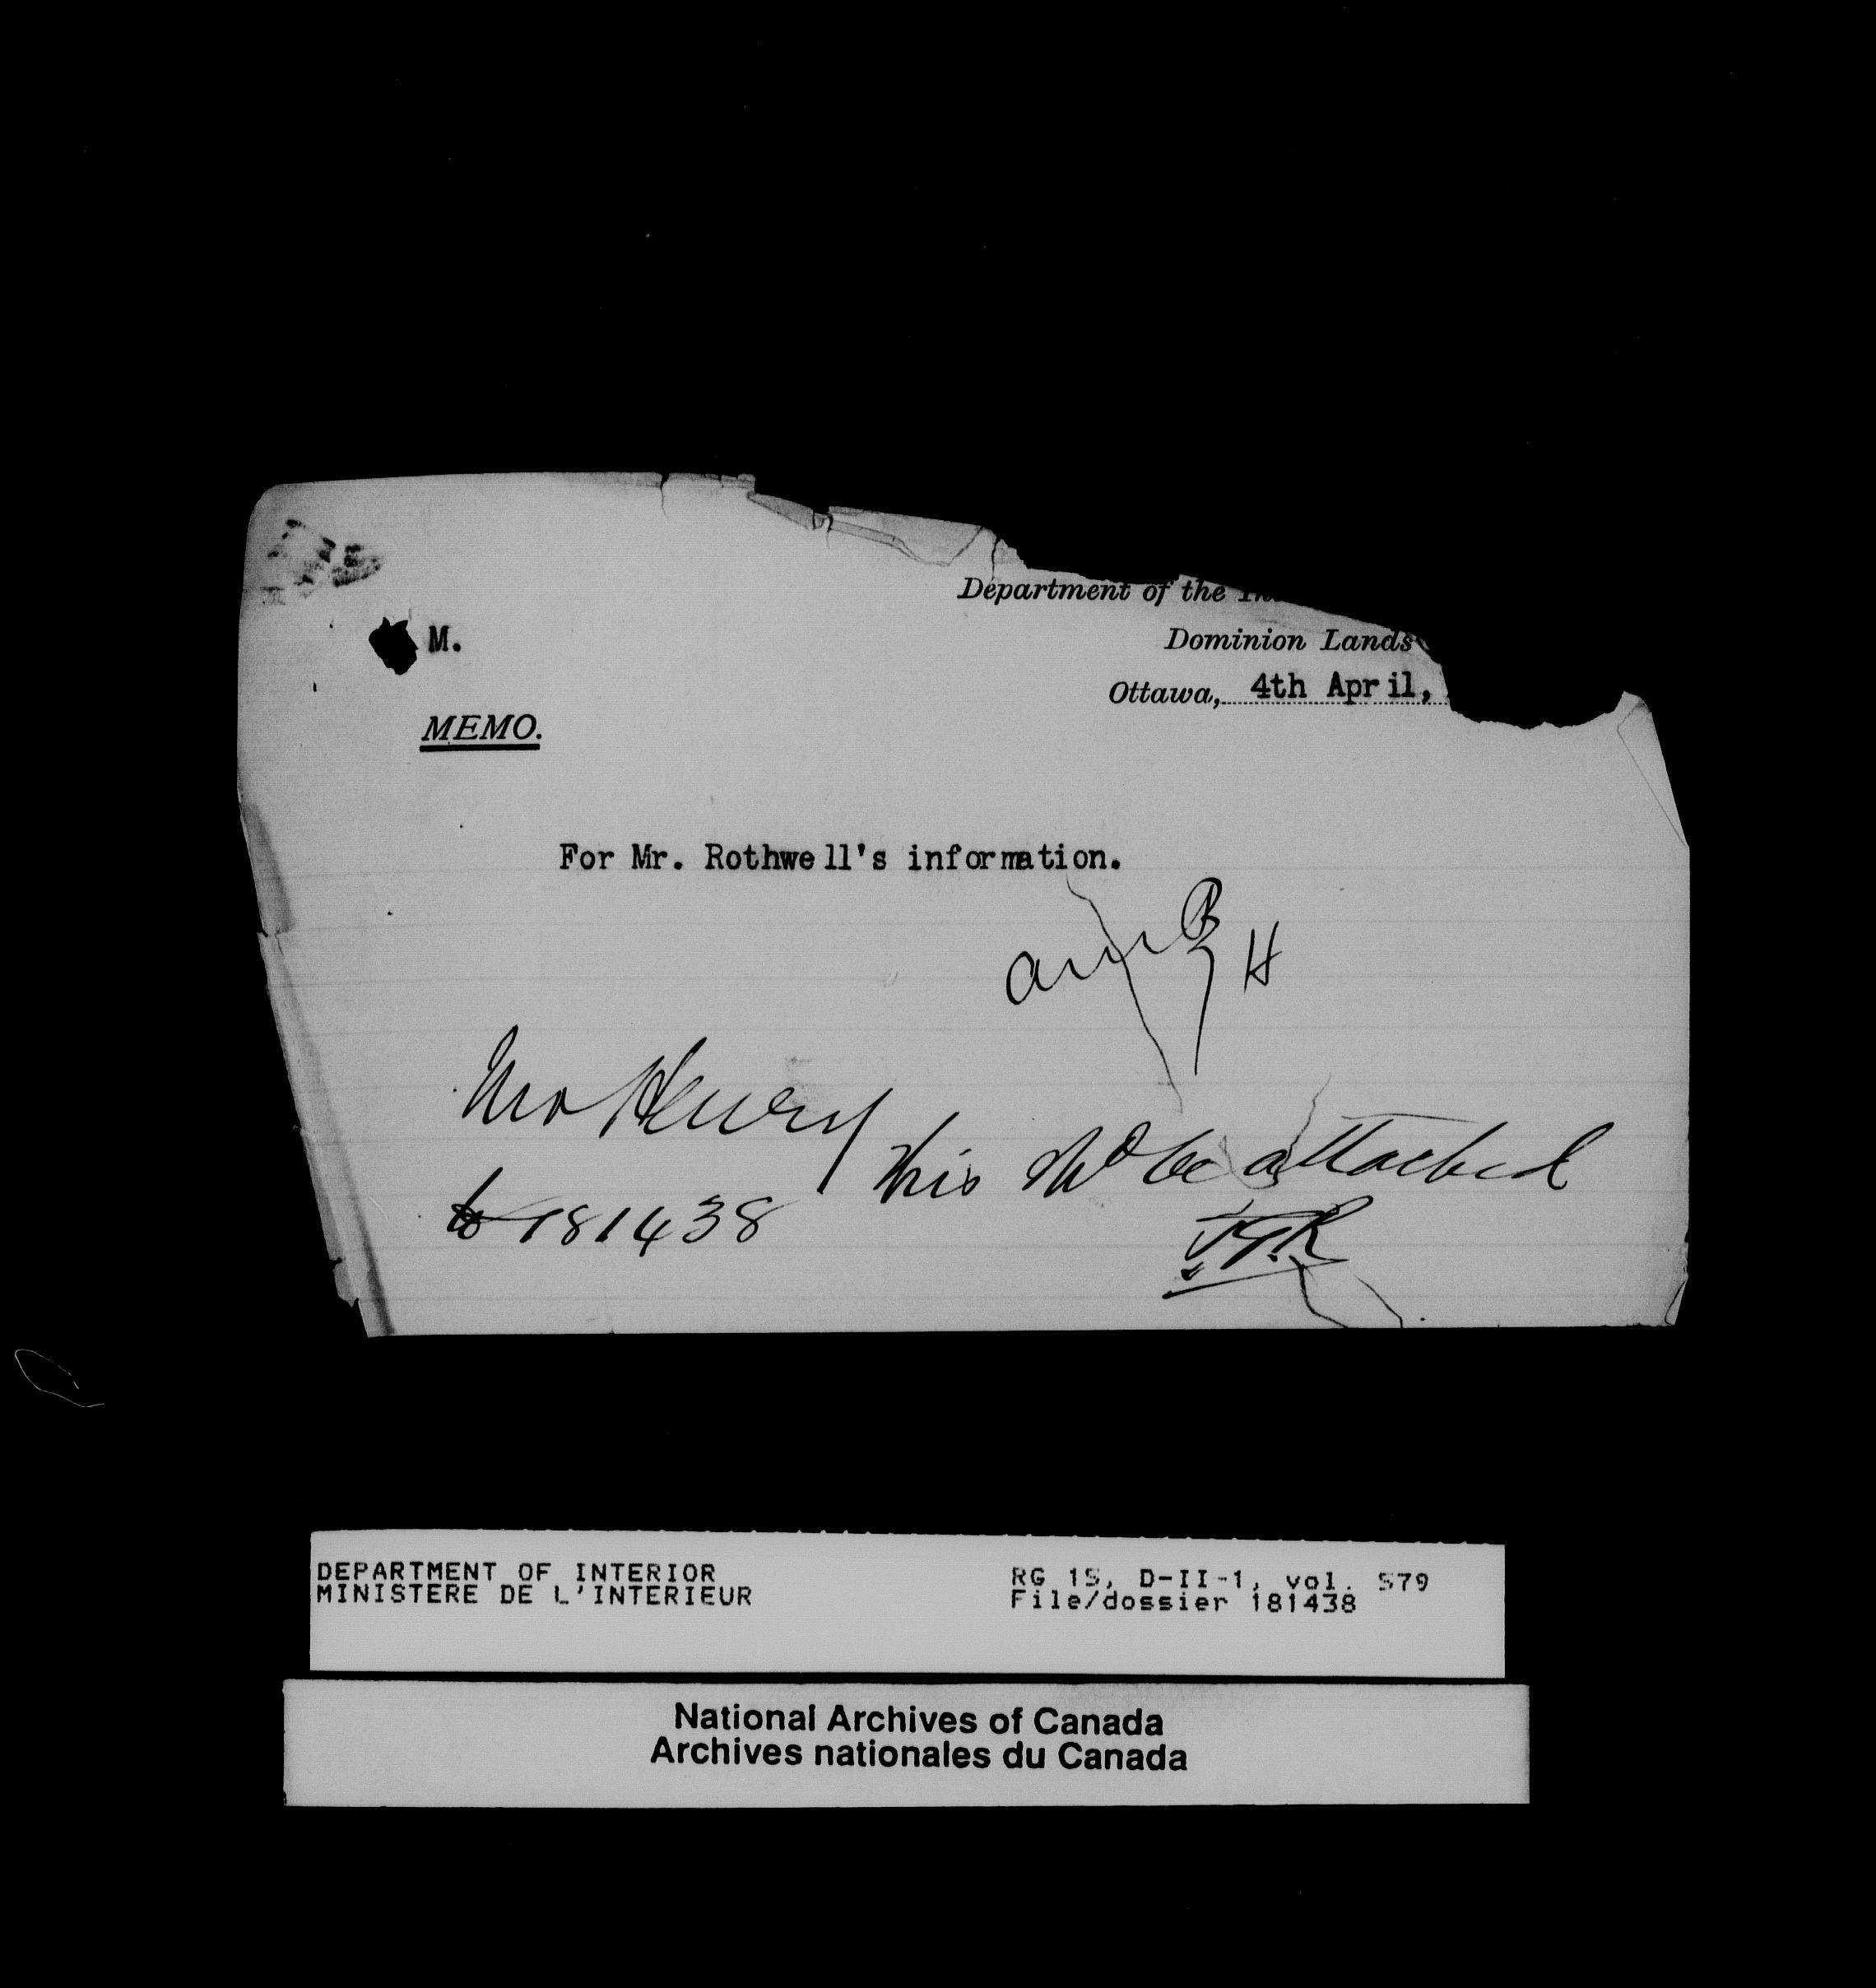 Department of the In
M.
Dominion Lands
Ottawa, 4th April,
MEMO.
For Mr. Rothwell's information.
H
Mr Henry
This shd be attached
to 181438
TGR
DEPARTMENT OF INTERIOR
MINISTERE DE L'INTERIEUR
RG 15, D-II-1, vol. 579
File/dossier 181438
National Archives of Canada
Archives nationales du Canada